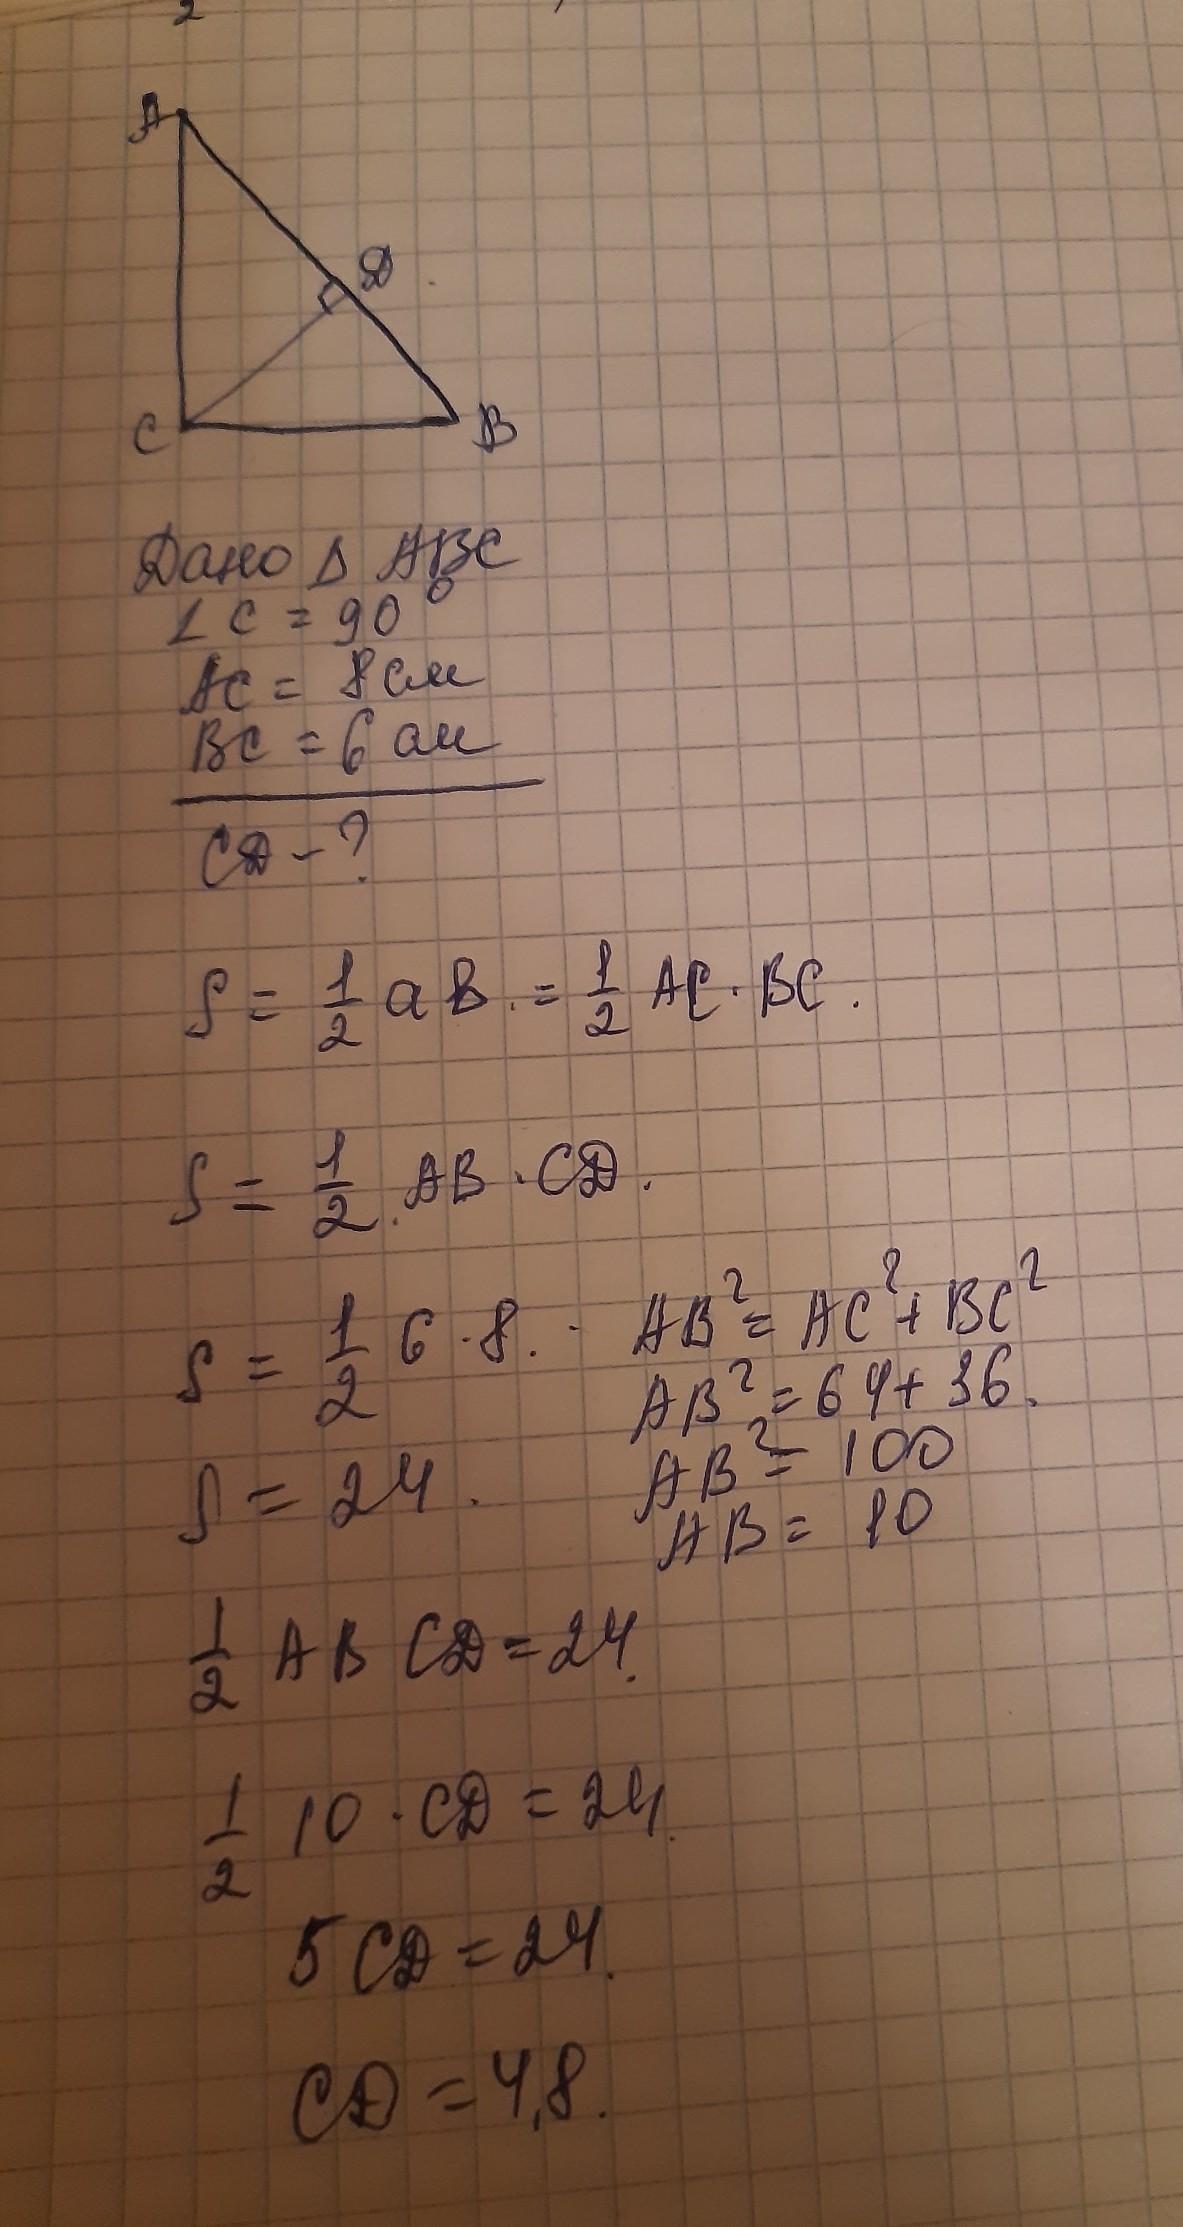 2
A
D
C
B
Дано Δ ABC
∠C = 90°
AC = 8 см
BC = 6 см
CD - ?
S = 1/2 a в. = 1/2 AC · BC.
S = 1/2 · AB · CD.
S = 1/2 6 · 8.
S = 24.
AB² = AC² + BC²
AB² = 64 + 36.
AB² = 100
AB = 10
1/2 AB CD = 24.
1/2 10 · CD = 24.
5 CD = 24.
CD = 4,8.